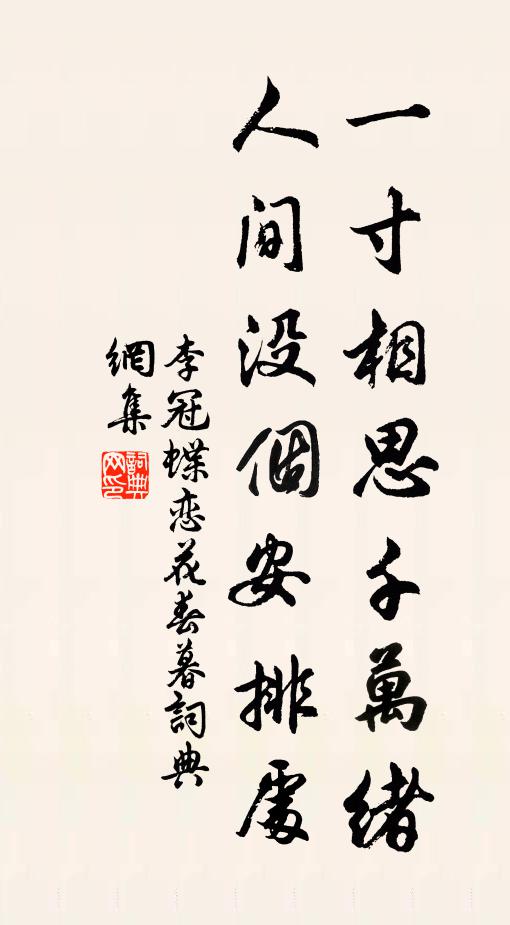 一寸相思千萬緒
人间没個安排處
李冠蝶恋花春暮詞典
網集
詞典網印